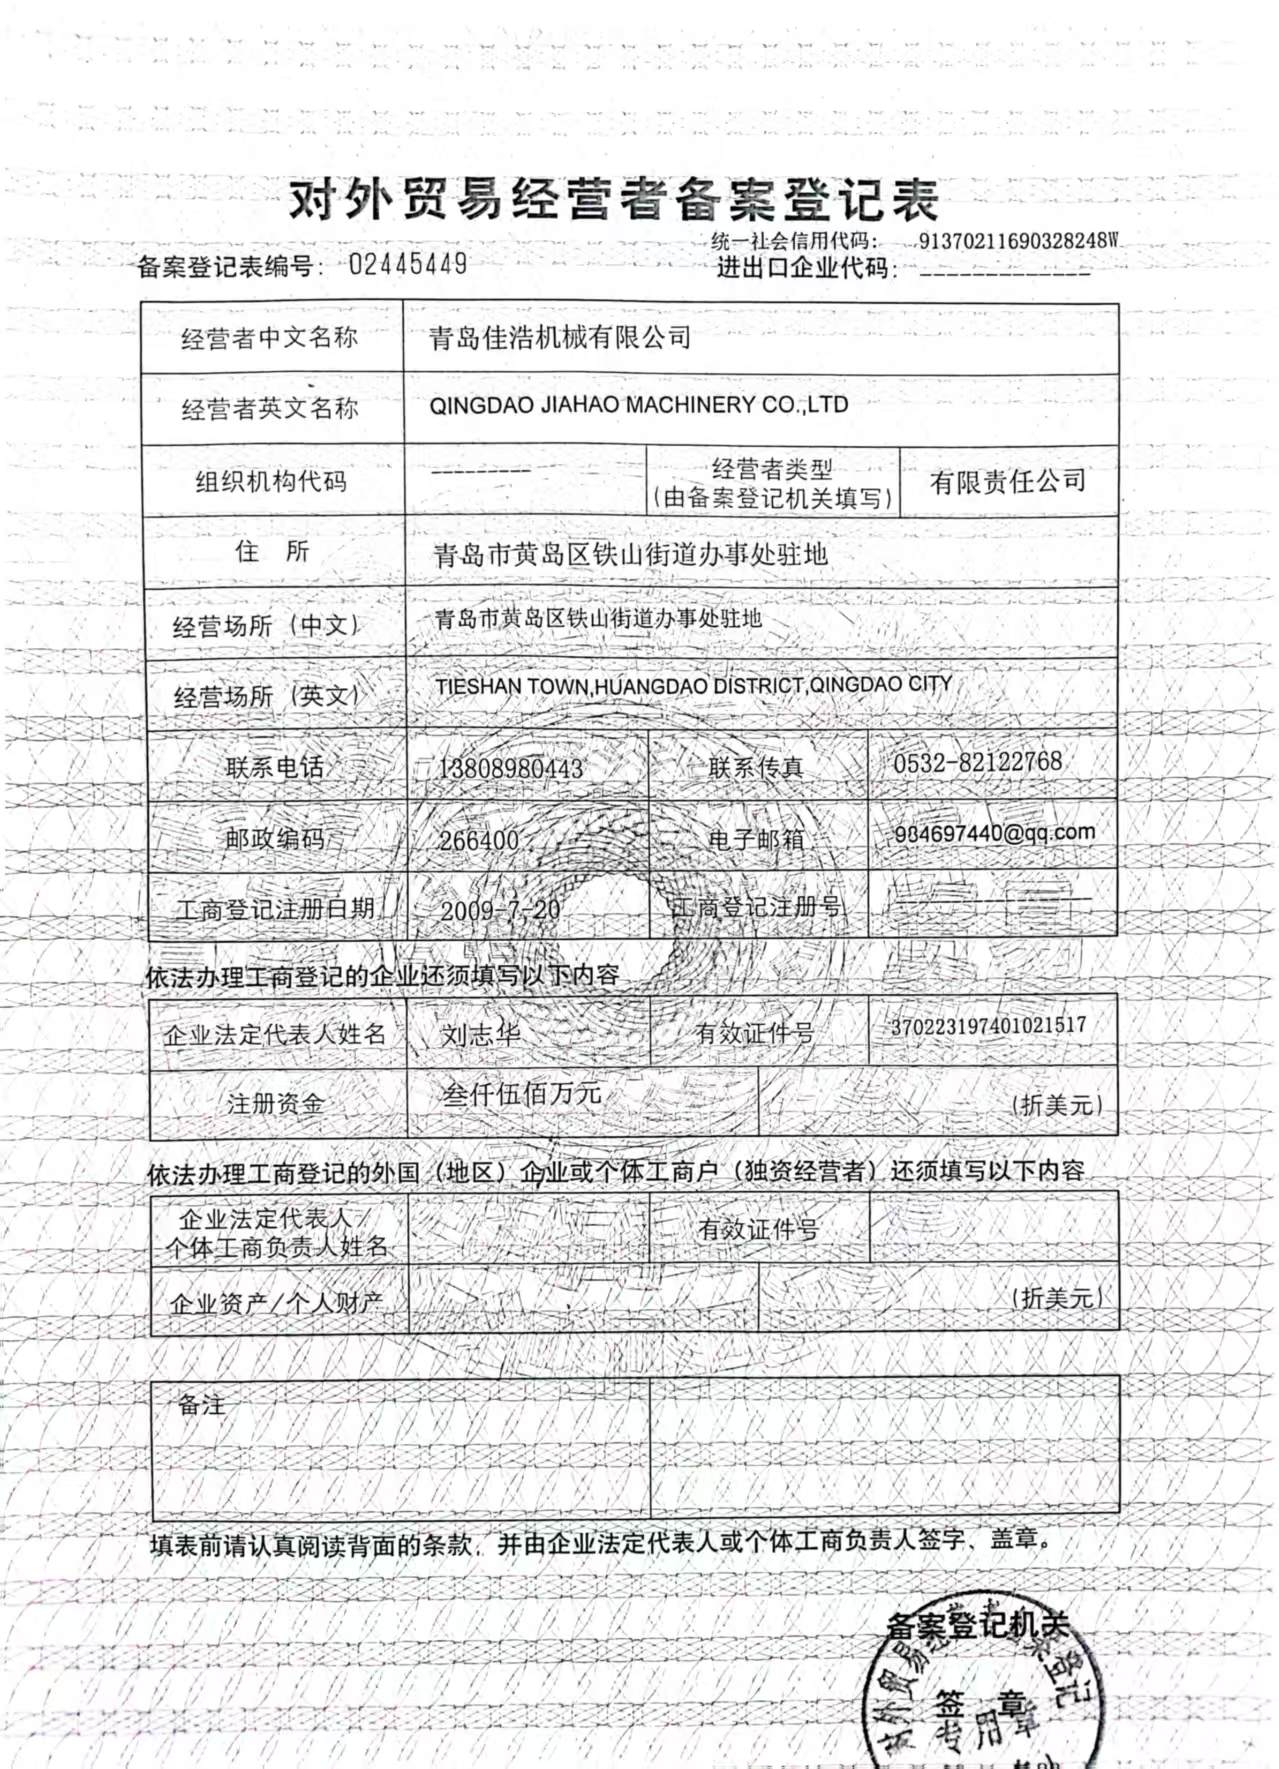 对外贸易经营者备案登记表
统一社会信用代码： 91370211690328248W
备案登记表编号： 02445449
进出口企业代码： -------------
经营者中文名称 青岛佳浩机械有限公司
经营者英文名称 QINGDAO JIAHAO MACHINERY CO.,LTD
组织机构代码 --------- 经营者类型 有限责任公司
(由备案登记机关填写)
住 所 青岛市黄岛区铁山街道办事处驻地
经营场所（中文） 青岛市黄岛区铁山街道办事处驻地
经营场所（英文） TIESHAN TOWN,HUANGDAO DISTRICT,QINGDAO CITY
联系电话 13808980443 联系传真 0532-82122768
邮政编码 266400 电子邮箱 984697440@qq.com
工商登记注册日期 2009-7-20 工商登记注册号 ---------------
依法办理工商登记的企业还须填写以下内容
企业法定代表人姓名 刘志华 有效证件号 370223197401021517
注册资金 叁仟伍佰万元 (折美元)
依法办理工商登记的外国（地区）企业或个体工商户（独资经营者）还须填写以下内容
企业法定代表人/
个体工商负责人姓名 有效证件号
企业资产/个人财产 (折美元)
备注
填表前请认真阅读背面的条款，并由企业法定代表人或个体工商负责人签字、盖章。
备案登记机关
签 章
专用章